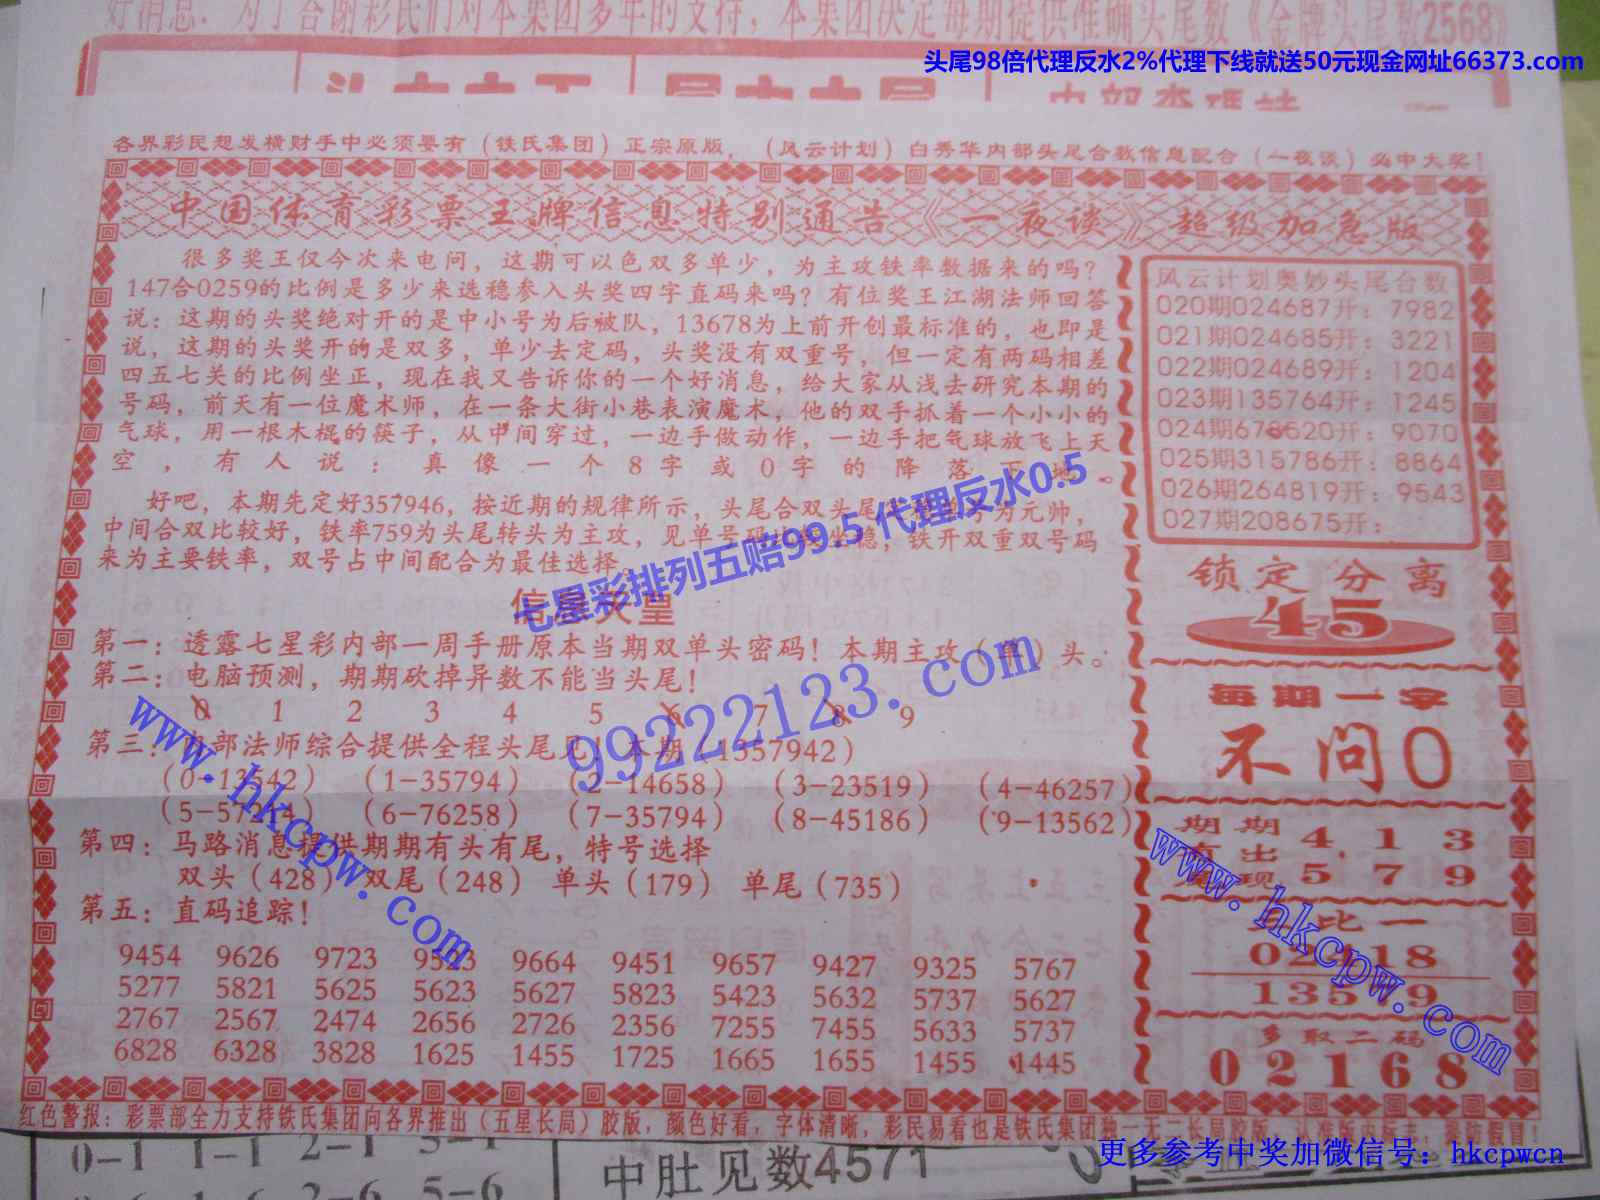 好消息:为了合谢彩民们对本集团多年的支付,本集团决定每期提供准确头尾数《金牌头尾数2568》
头尾98倍代理反水2%代理下线就送50元现金网址66373.com
各界彩民想发横财手中必须要有（铁氏集团）正宗原版，（风云计划）白秀华内部头尾合数信息配合（一夜谈）必中大奖！
中国体育彩票王牌信息特别通告《一夜谈》超级加急版
很多奖王仅今次来电问，这期可以色双多单少，为主攻铁率数据来的吗？
147合0259的比例是多少来选稳参入头奖四字直码来吗？有位奖王江湖法师回答
说：这期的头奖绝对开的是中小号为后被队，13678为上前开创最标准的，也即是
说，这期的头奖开的是双多，单少去定码，头奖没有双重号，但一定有两码相差
四五七关的比例坐正，现在我又告诉你的一个好消息，给大家从浅去研究本期的
号码，前天有一位魔术师，在一条大街小巷表演魔术，他的双手抓着一个小小的
气球，用一根木棍的筷子，从中间穿过，一边手做动作，一边手把气球放飞上天
空，有人说：真像一个8字或0字的降落下
好吧，本期先定好357946，按近期的规律所示，头尾合双头尾 号为元帅，
中间合双比较好，铁率759为头尾转头为主攻，见单号码 坐稳，铁开双重双号码
来为主要铁率，双号占中间配合为最佳选择。
七星彩排列五赔99.5 代理反水0.5
信息天皇
第一：透露七星彩内部一周手册原本当期双单头密码！本期主攻（单）头。
第二：电脑预测，期期砍掉异数不能当头尾！
0 1 2 3 4 5 6 7 8 9
第三： 部法师综合提供全程头尾见！本期（1357942）
（0-13542）（1-35794）（2-14658）（3-23519）（4-46257）
（5-57214）（6-76258）（7-35794）（8-45186）（9-13562）
第四：马路消息提供期期有头有尾，特号选择
双头（428）双尾（248）单头（179）单尾（735）
第五：直码追踪！
9454 9626 9723 9523 9664 9451 9657 9427 9325 5767
5277 5821 5625 5623 5627 5823 5423 5632 5737 5627
2767 2567 2474 2656 2726 2356 7255 7455 5633 5737
6828 6328 3828 1625 1455 1725 1665 1655 1455 1445
风云计划奥妙头尾合数
020期024687开：7982
021期024685开：3221
022期024689开：1204
023期135764开：1245
024期678520开：9070
025期315786开：8864
026期264819开：9543
027期208675开：
锁定分离
45
每期一字
不问0
期期 4 1 3
出现 5 7 9
比一
02 18
135 9
多取二码
02168
99222123.com
www.hkcpw.com
www.hkcpw.com
红色警报：彩票部全力支持铁氏集团向各界推出（五星长局）胶版，颜色好看，字体清晰，彩民易看也是铁氏集团独一无二长局胶版，
0-1 1-1 2-1 3-1
中肚见数4571
更多参考中奖加微信号：hkcpwcn
2-6 5-6